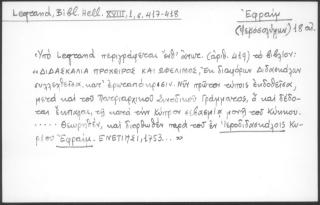 Legrand, Bibl. Hell. XVIII, 1, σ. 417-418
Ἐφραὶμ
(Ἱεροσολύμων) 18 αἰ.
Ὑπὸ Legrand περιγράφεται ὑπ' ἀριθ. (ἀριθ. 419) τὸ βιβλίον:
«ΔΙΔΑΣΚΑΛΙΑ ΠΡΟΧΕΙΡΟΣ ΚΑΙ ΩΦΕΛΙΜΟΣ, Ἐκ διαφόρων Διδασκάλων
συλλεχθεῖσα, κατ' ἐρωταπόκρισιν. Νῦν πρῶτον τύποις ἐκδοθεῖσα,
μετὰ καὶ τοῦ Πατριαρχικοῦ Συνοδικοῦ Γράμματος, ὃ καὶ δέδο-
ται ἕνεκεν τῇ κατὰ τὴν Κύπρον σεβασμίᾳ μονῇ τοῦ Κύκκου.
..... Θεωρηθὲν, καὶ διορθωθὲν παρὰ τοῦ ἐν Ἱεροδιδασκάλοις Κυ-
ρίου Ἐφραίμ. ΕΝΕΤΙΗΣΙ, 1753... »